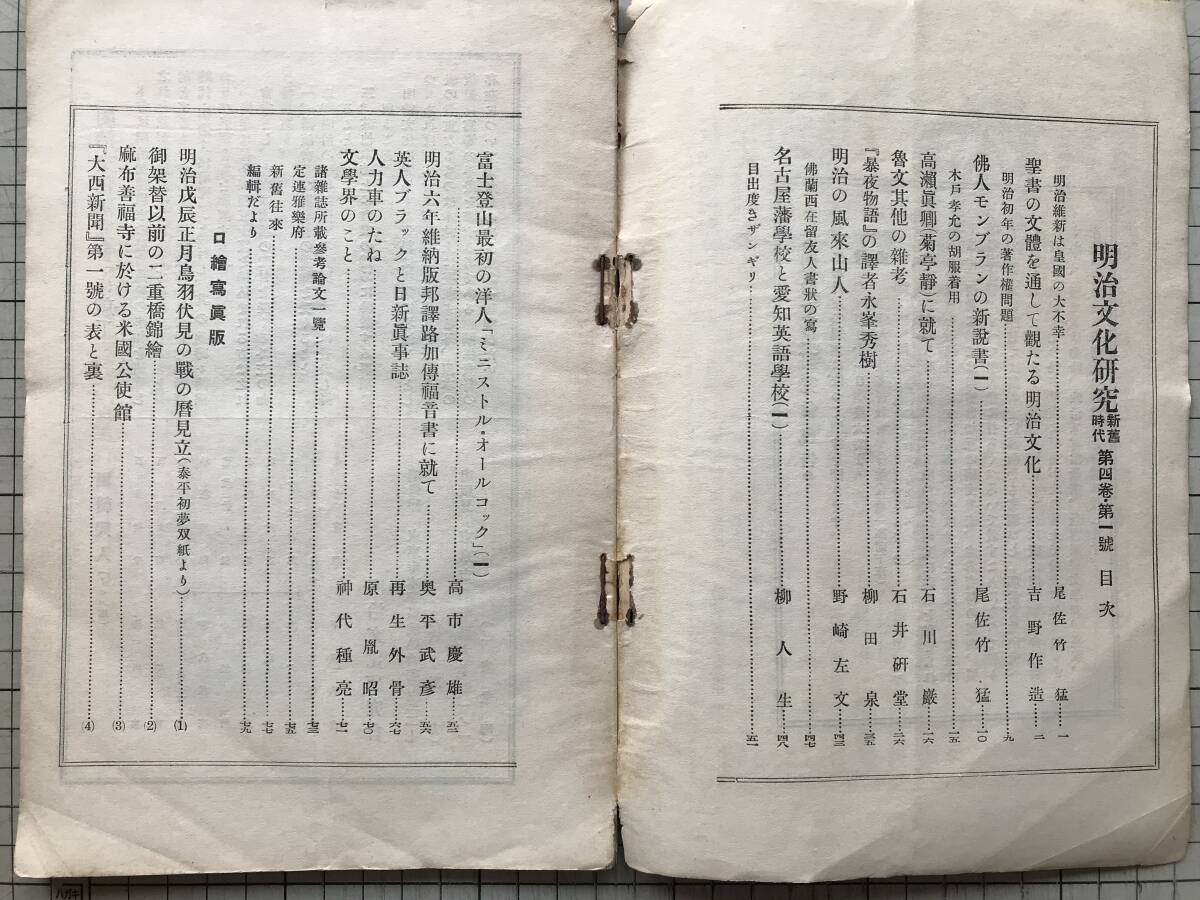 明治文化研究 新舊時代 第四卷・第一號 目次
明治維新は皇國の大不幸 尾佐竹 猛 一
聖書の文體を通して觀たる明治文化 吉野作造 二
明治初年の著作權問題 九
佛人モンブランの新說書(一) 尾佐竹 猛 一〇
木戸孝允の胡服着用 一五
高瀨眞卿(菊亭靜)に就て 石川 巖 一六
魯文其他の雜考 石井研堂 二六
『暴夜物語』の譯者永峯秀樹 柳田 泉 三五
明治の風來山人 野崎左文 四三
佛蘭西在留友人書狀の寫 四七
名古屋藩學校と愛知英語學校(一) 柳 人 生 四八
目出度きザンギリ 五一
富士登山最初の洋人「ミニストル・オールコック」(一) 高市慶雄 五三
明治六年維納版邦譯路加傳福音書に就て 奥平武彥 五六
英人ブラックと日新眞事誌 再生外骨 六七
人力車のたね 原 胤昭 七〇
文學界のこと 神代種亮 七一
諸雜誌所載參考論文一覽 七三
定連雅樂府 七五
新舊往來 七七
編輯だより 七九
口繪寫眞版
明治戊辰正月鳥羽伏見の戰の曆見立(泰平初夢双紙より) (1)
御架替以前の二重橋錦繪 (2)
麻布善福寺に於ける米國公使館 (3)
『大西新聞』第一號の表と裏 (4)
ハガキ